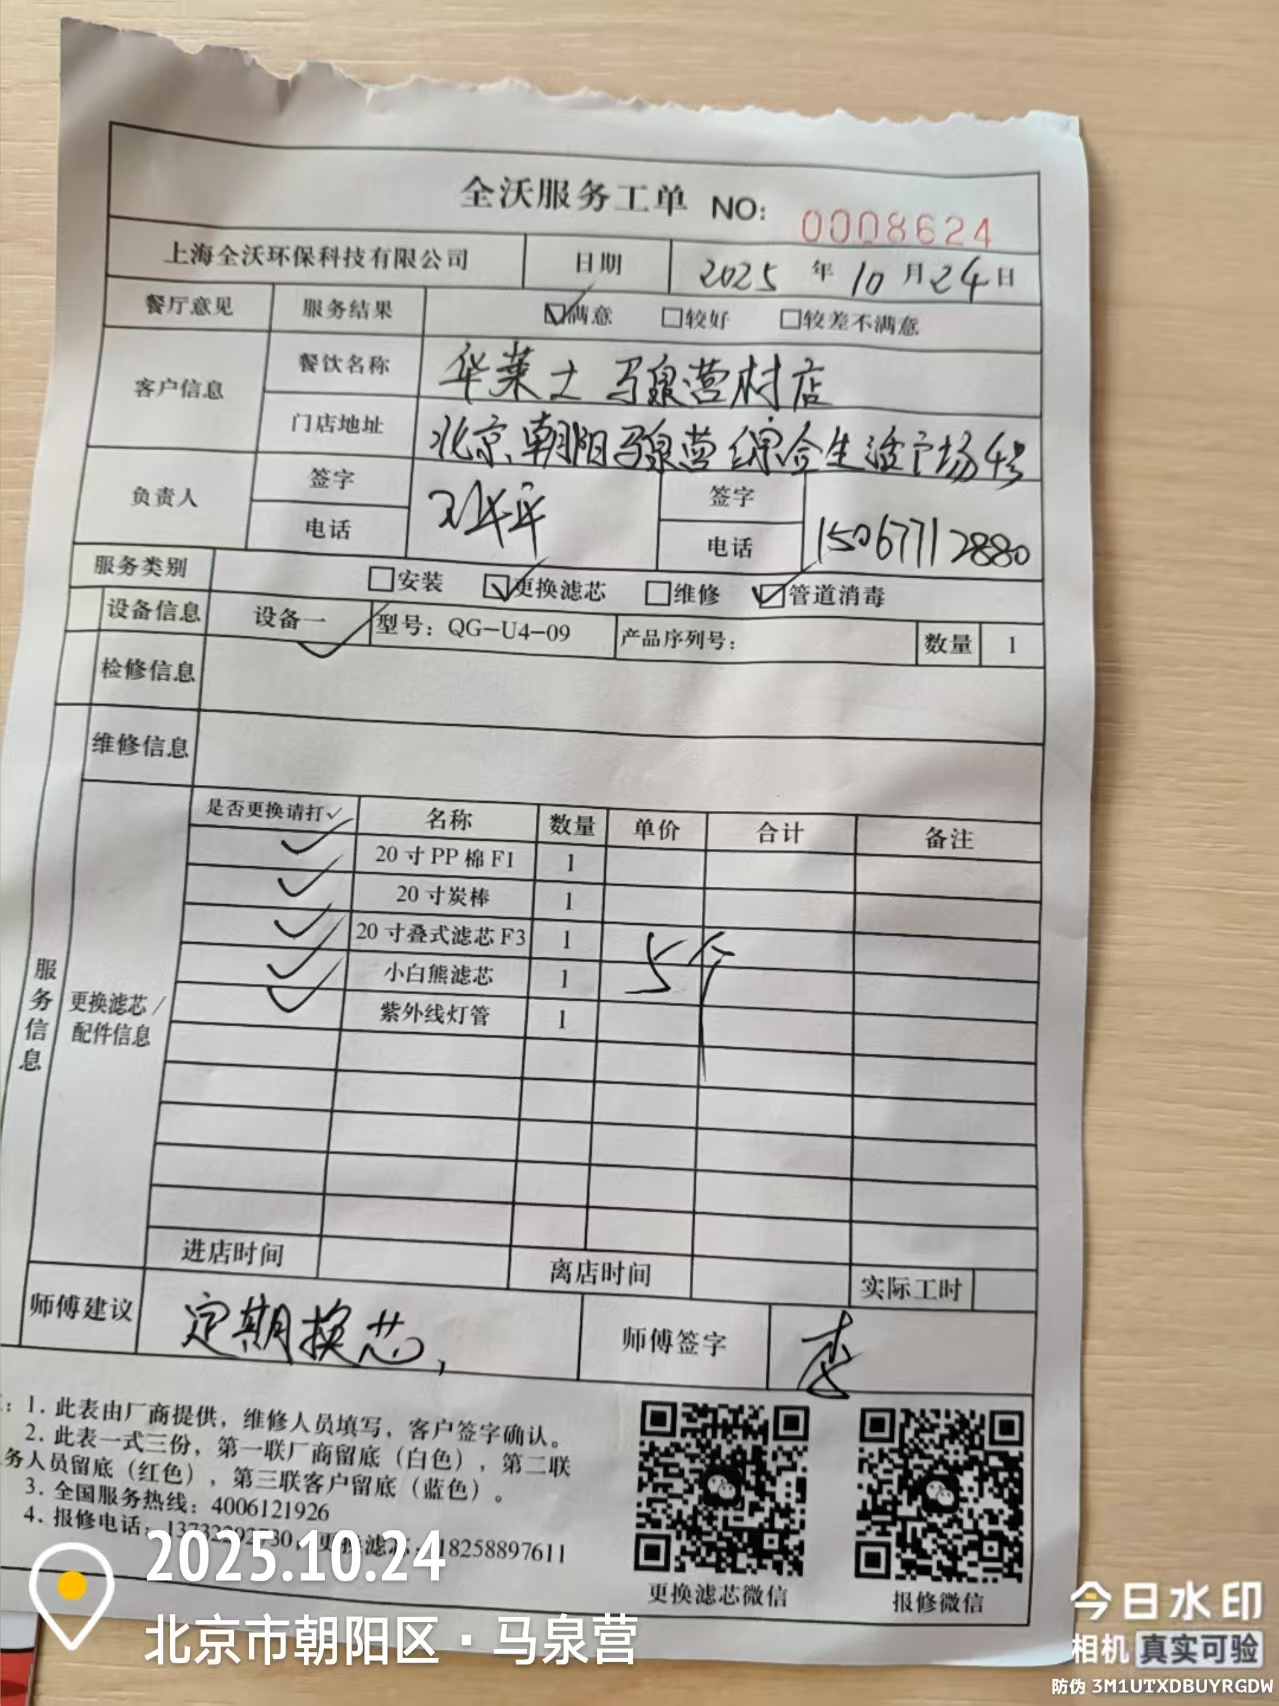 全沃服务工单 NO: 0008624
上海全沃环保科技有限公司 日期 2025 年 10 月 24 日
餐厅意见 服务结果 ☑满意 □较好 □较差不满意
客户信息 餐饮名称 华莱士 马泉营村店
门店地址 北京朝阳马泉营综合生活广场4号
负责人 签字 签字
电话 电话 15067712880
服务类别 □安装 ☑更换滤芯 □维修 ☑管道消毒
设备信息 设备一 ✓ 型号：QG-U4-09 产品序列号： 数量 1
检修信息
维修信息
服务信息
更换滤芯/配件信息
是否更换请打✓ 名称 数量 单价 合计 备注
✓ 20寸PP棉F1 1
✓ 20寸炭棒 1
✓ 20寸叠式滤芯F3 1
✓ 小白熊滤芯 1
✓ 紫外线灯管 1
5个
进店时间 离店时间 实际工时
师傅建议 定期换芯， 师傅签字 李
：1. 此表由厂商提供，维修人员填写，客户签字确认。
2. 此表一式三份，第一联厂商留底（白色），第二联
务人员留底（红色），第三联客户留底（蓝色）。
3. 全国服务热线：4006121926
4. 报修电话： 更换滤芯：18258897611
更换滤芯微信 报修微信
2025.10.24
北京市朝阳区·马泉营
今日水印
相机 真实可验
防伪 3M1UTXDBUYRGDW